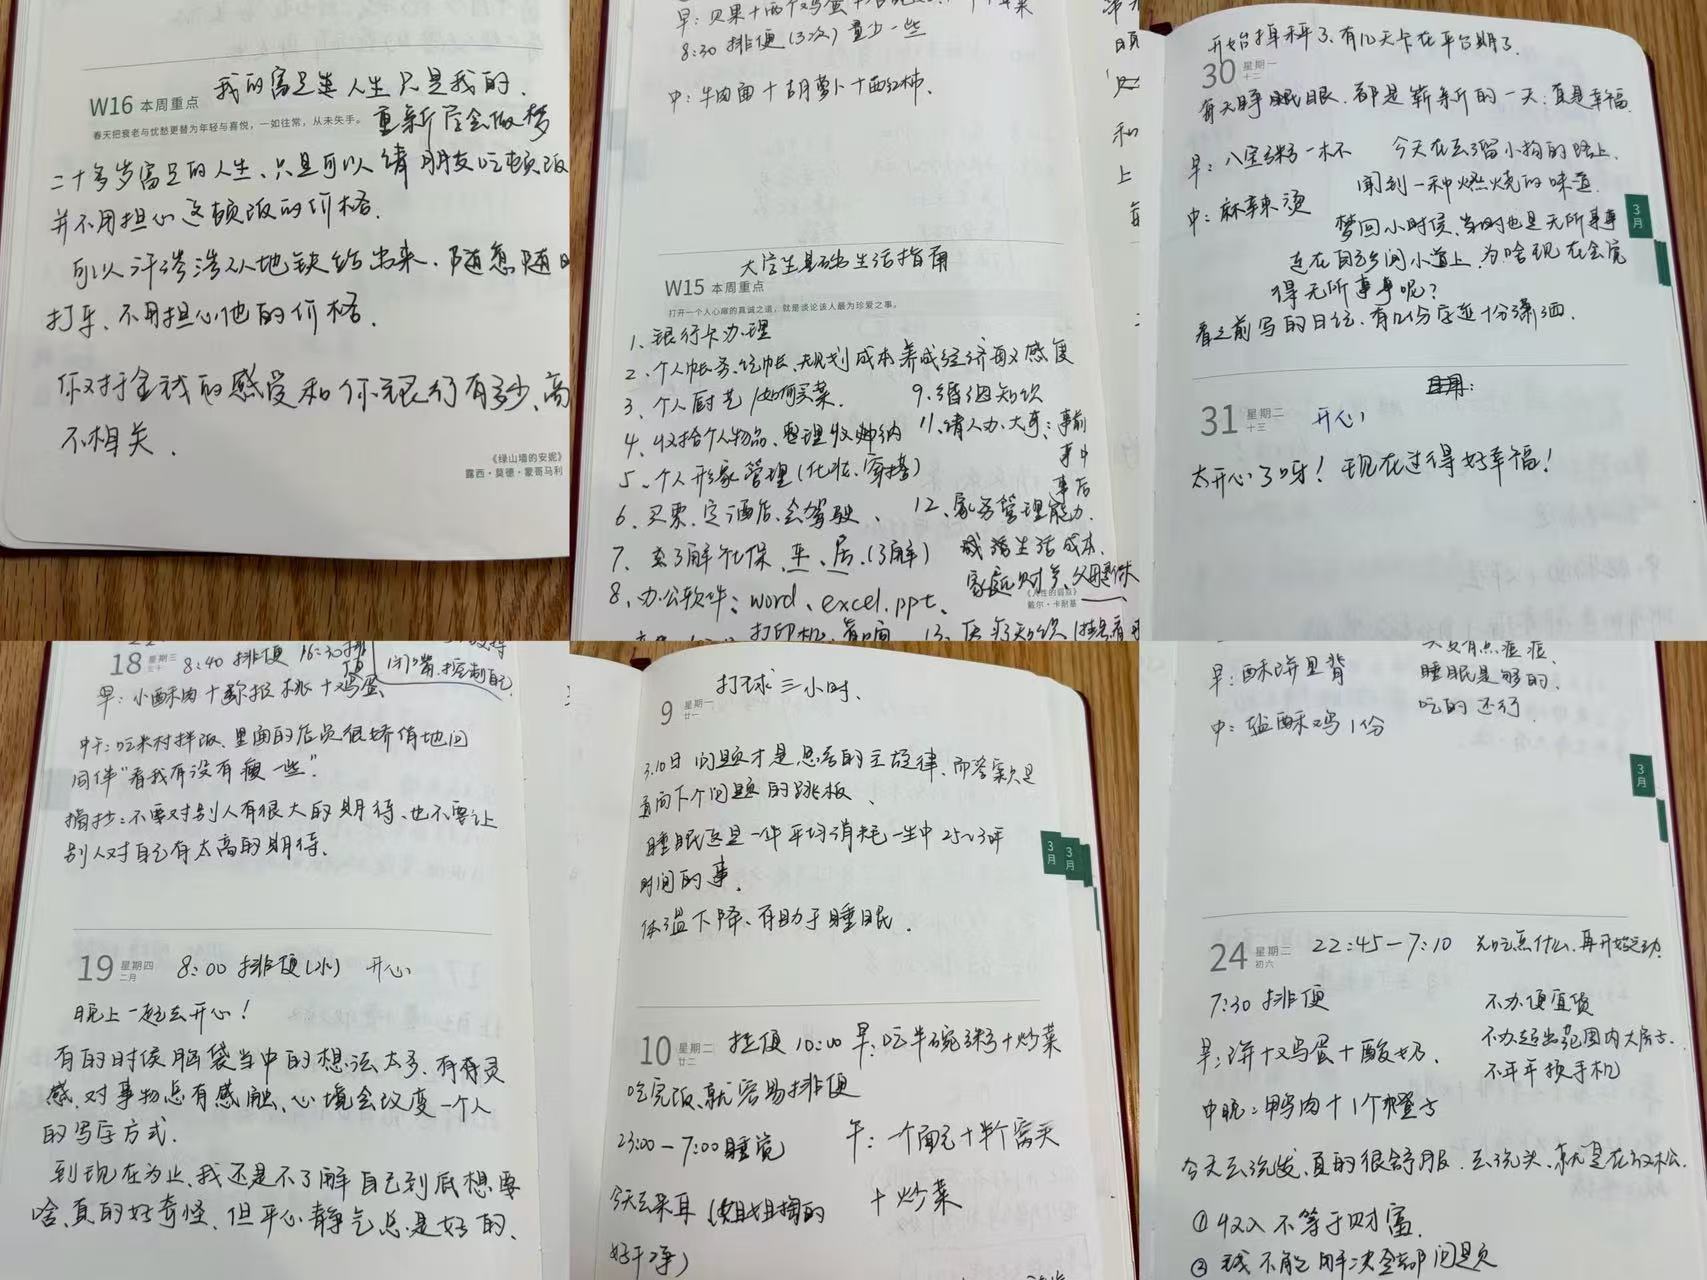 我的富足类人生只是我的.
W16 本周重点
春天把衰老与忧愁更替为年轻与喜悦，一如往常，从未失手。
重新学会做梦
二十多岁富足的人生、只是可以请朋友吃顿饭
并不用担心这顿饭的价格.
可以汗涔涔从地铁站出来、随意随时
打车、不用担心他的价格.
你对于金钱的感受和你银行有多少、高
不相关.
《绿山墙的安妮》
露西·莫德·蒙哥马利
早：贝果+两个鸡蛋+
8:30 排便(3次)量少一些
中：牛肉面+胡萝卜+西红柿.
大学生基础生活指南
W15 本周重点
打开一个人心扉的真诚之道，就是谈论该人最为珍爱之事。
1、银行卡办理
2、个人帐务、记帐、规划成本养成经济敏感度
3、个人厨艺/如何买菜.
9、婚姻知识
4、收拾个人物品、整理收纳
11、请人办大事：事前
事中
事后
5、个人形象管理(化妆、穿搭)
6、买票、定酒店、会驾驶、
12、家务管理能力.
7、要了解社保、医、居、(了解)
或活生活成本、
家庭财务、父母退休
8、办公软件：word、excel.ppt、
《人性的弱点》
戴尔·卡耐基
打印机、
13、医疗知识
开始掉秤了、有几天卡在平台期了.
30 星期一
十二
每天睁眼眠眼、都是崭新的一天：真是幸福.
早：八宝粥一杯
今天在去遛小狗的路上
闻到一种燃烧的味道.
中：麻辣烫
梦回小时候、当时也是无所事事
走在回乡间小道上、为啥现在会觉
得无所事事呢？
看之前写的日记、有几分字迹十分潇洒.
3月
31 星期二
十三
开心
太开心了呀！现在过得好幸福！
18 星期三
三十
8:40 排便 16:30排便
闭嘴、控制自己
早：小酥肉+
+鸡蛋
中午：吃米村拌饭、里面的店员很娇俏地问
同伴“看我有没有瘦一些”.
摘抄：不要对别人有很大的期待、也不要让
别人对自己有太高的期待、
19 星期四
二月
8:00 排便(水) 开心
晚上一起去开心！
有的时候脑袋当中的想法太多、有奇灵
感、对事物总有感触、心境会改变一个人
的写字方式.
到现在为止、我还是不了解自己到底想要
啥、真的好奇怪、但平心静气总是好的、
打球三小时、
9 星期一
廿一
3.10日 问题才是思考的主旋律、而答案只是
走向下个问题的跳板、
睡眠这是一件平均消耗一生中25~3年
时间的事、
体温下降、有助于睡眠.
3月
3月
10 星期二
廿二
拉便 10:00 早：吃半碗粥+炒菜
吃完饭、就容易排便
23:00—7:00睡觉
午：一个面包+半个窝头
+炒菜
今天去采耳(小姐姐掏的
好干净)
早：酥饼里脊
睡眠是够的、
吃的还行.
中：盐酥鸡1份
3月
24 星期二
初六
22:45—7:10 先吃点什么、再开始运动.
7:30 排便
不办便宜货
早：饼+鸡蛋+酸奶.
不办超出范围内大房子.
不年年换手机
中晚：鸭肉+1个橙子
今天去洗发、真的很舒服、去洗头、就是在放松.
①收入不等于财富.
②钱不能解决全部问题